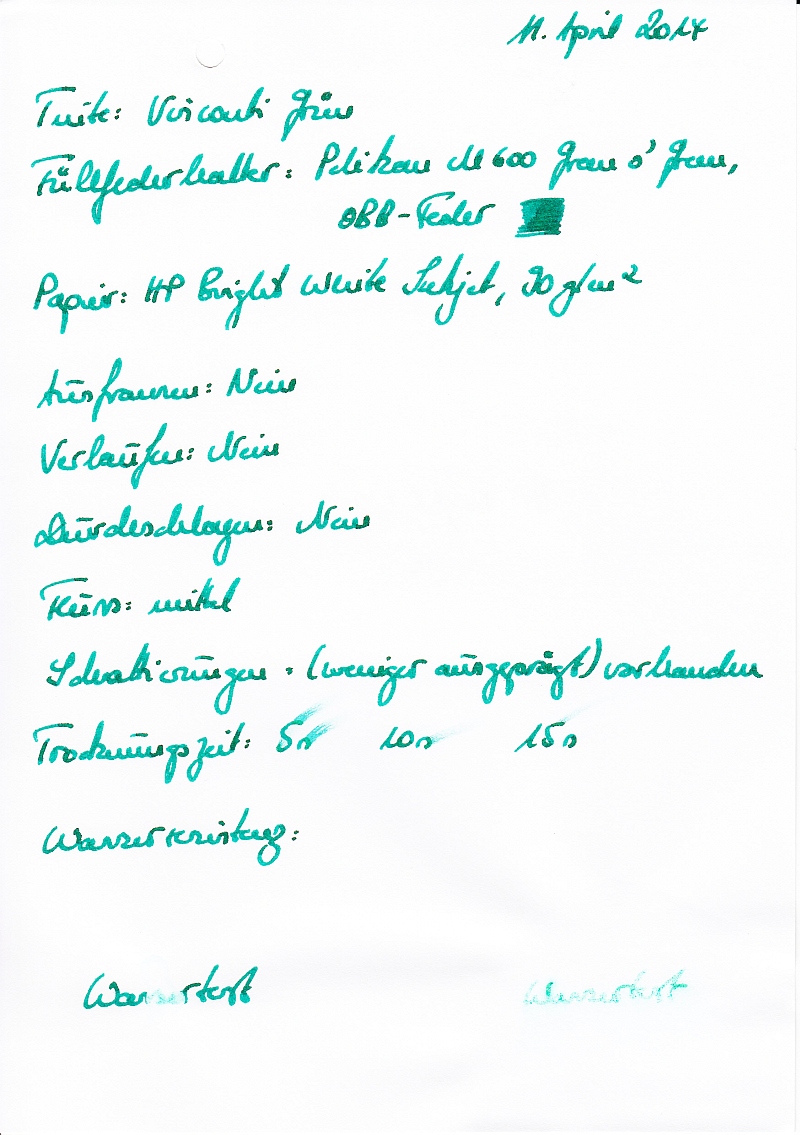 11. April 2014
Tinte: Visconti Grün
Füllfederhalter: Pelikan M600 Green o' Green,
OBB-Feder
Papier: HP Bright White InkJet, 90 g/m²
Ausfransen: Nein
Verlaufen: Nein
Durchschlagen: Nein
Fluss: mittel
Schattierungen: (weniger ausgeprägt) vorhanden
Trocknungszeit: 5s 10s 15s
Wasserresistenz:
Wassertest Wassertest